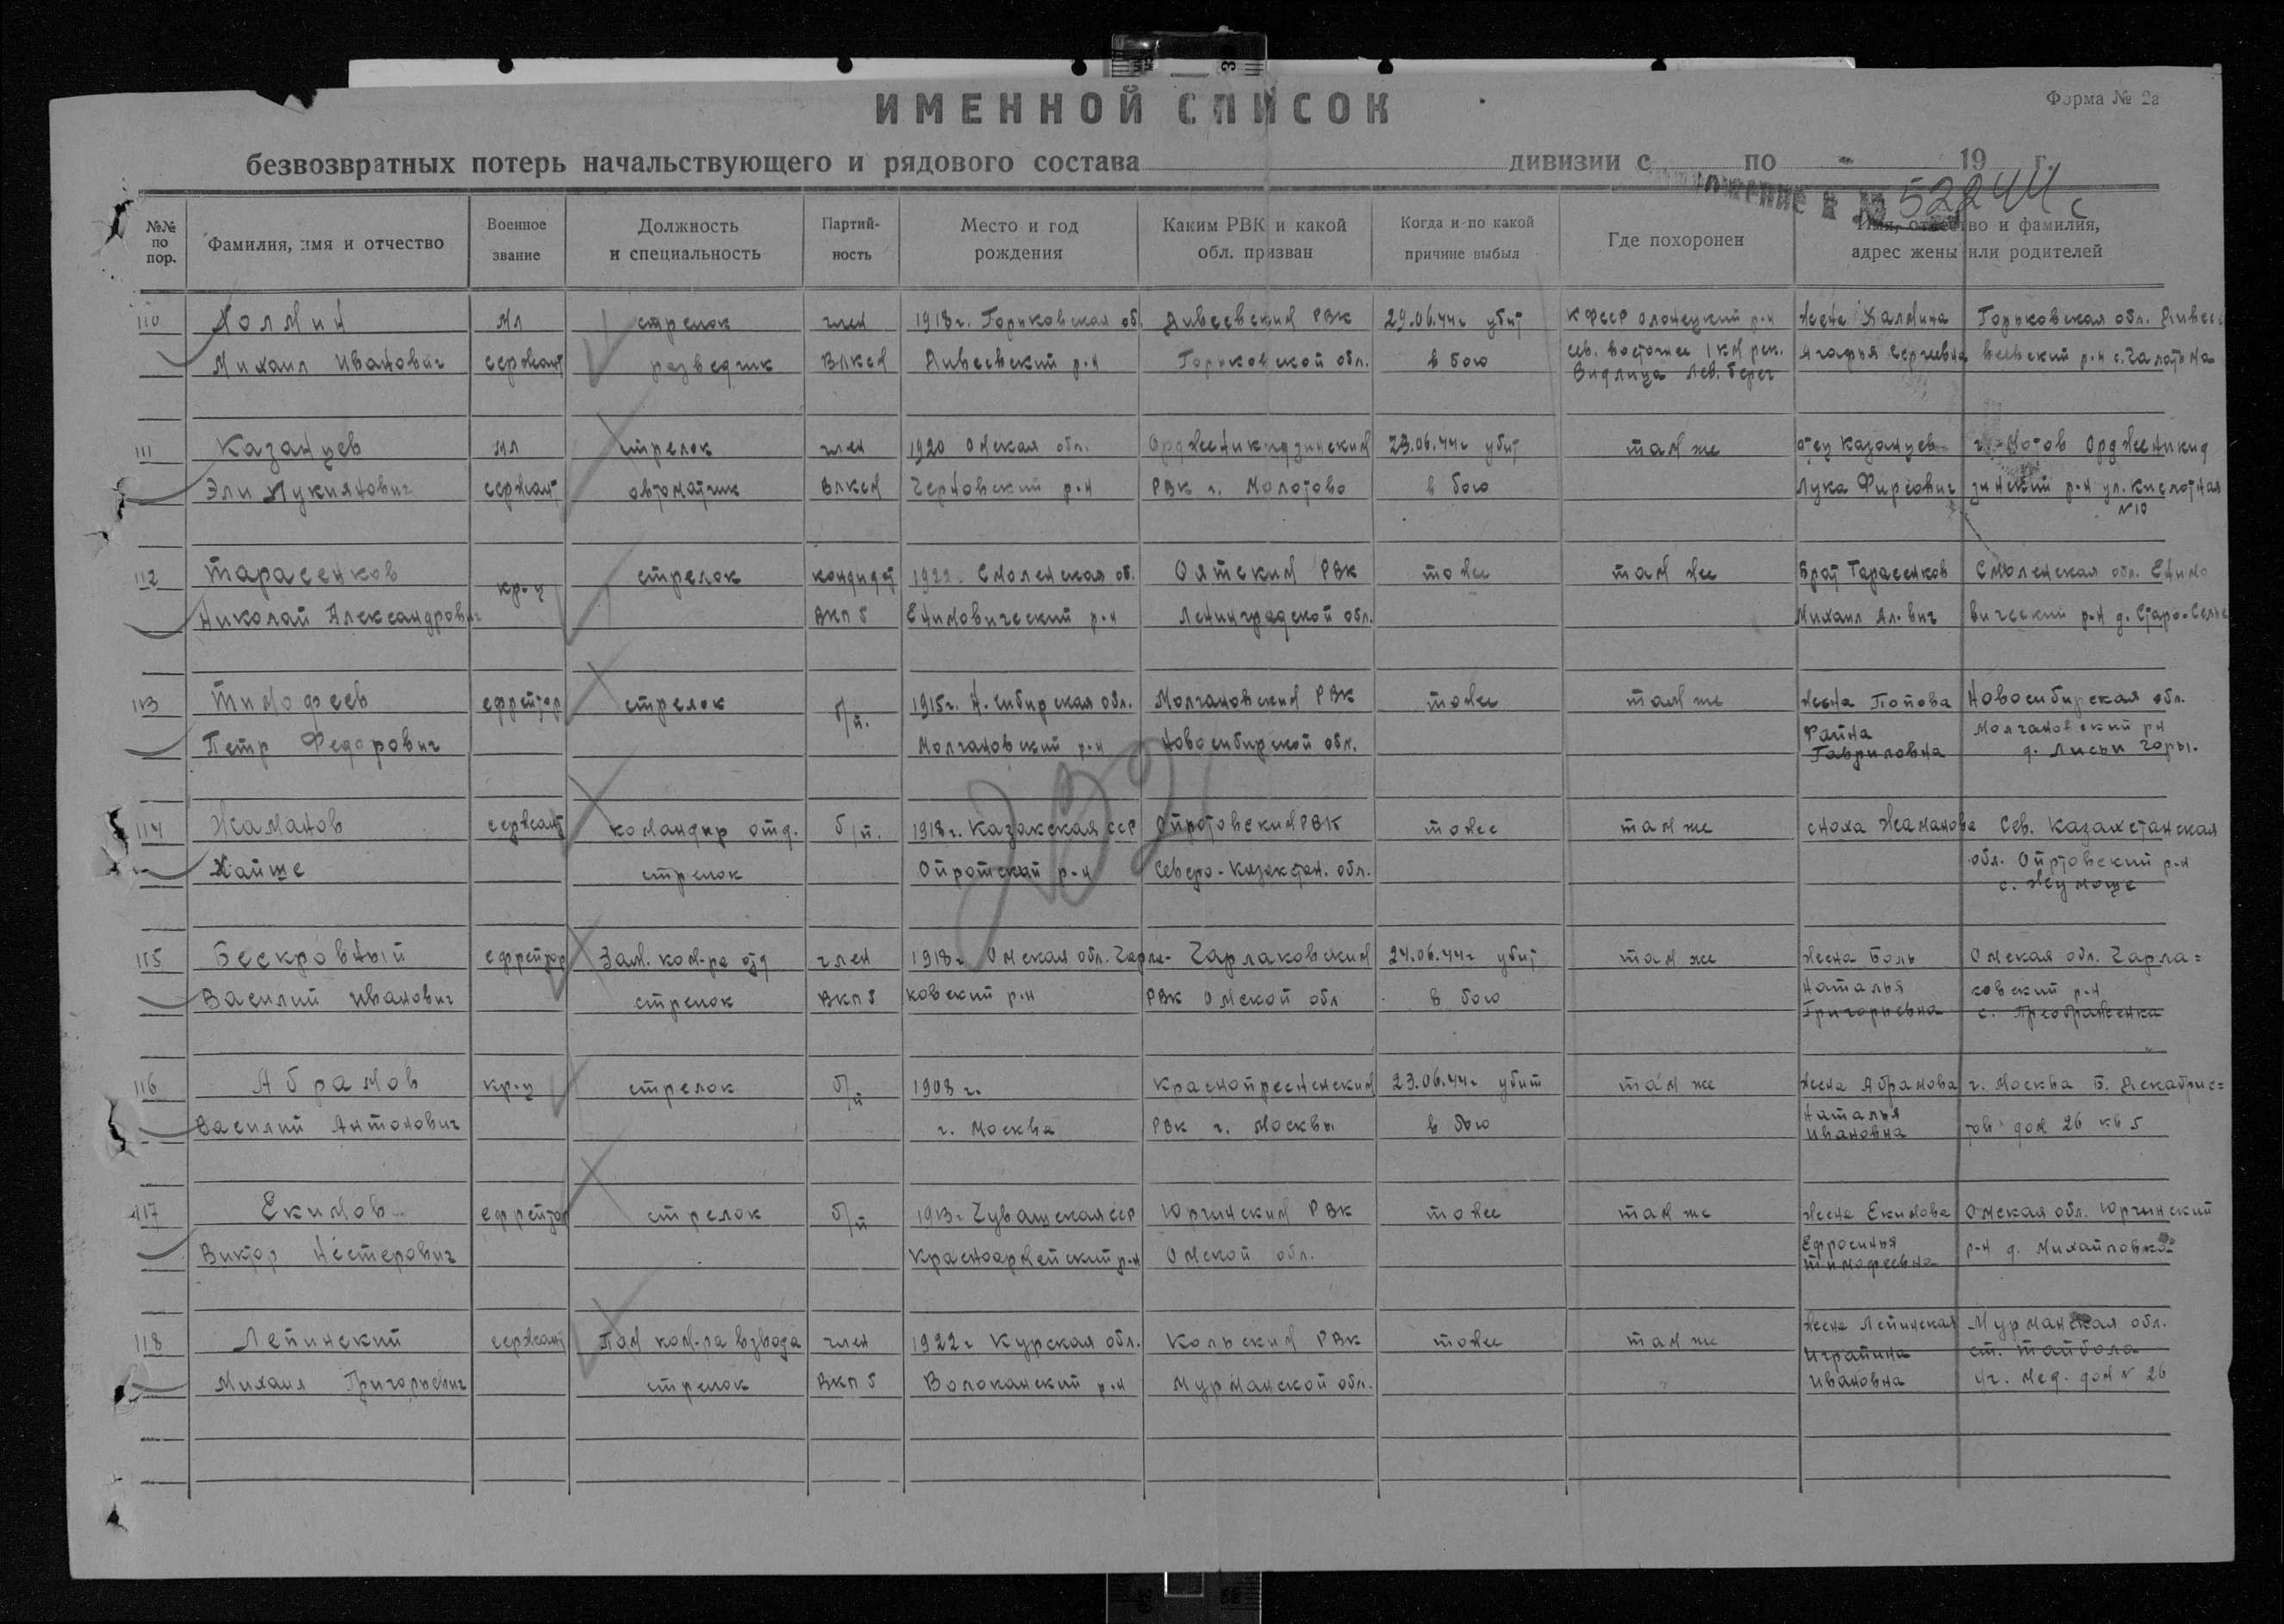 ИМЕННОЙ СПИСОК
Форма № 2а
безвозвратных потерь начальствующего и рядового состава дивизии с по 19 г.
к № 52244с
№№ по пор.
Фамилия, имя и отчество
Военное звание
Должность и специальность
Партий-ность
Место и год рождения
Каким РВК и какой обл. призван
Когда и по какой причине выбыл
Где похоронен
Имя, отчество и фамилия, адрес жены или родителей
110 Холмин мл стрелок член 1918г. Горьковская об. Дивеевским РВК 29.06.44г убит КФССР Олонецкий р-н жена Халмина Горьковская обл. Дивее
Михаил Иванович сержант разведчик ВЛКСМ Дивеевский р-н Горьковской обл. в бою сев. восточнее 1 км рек. Агафья Сергеевна веевский р-н
Видлица лев. берег
111 Казанцев мл стрелок член 1920 Омская обл. Ордженикидзинским 23.06.44г убит там же отец Казанцев Ордженикид
Эли Лукиянович сержант автоматчик ВЛКСМ р-н РВК г. Молотово в бою Лука Фирсович зинский р-н ул. Кислотная
№10
112 Тарасенков кр-ц стрелок кондидат 1922. Смоленская об. Оятским РВК тоже там же Брат Тарасенков Смоленская обл. Екимо
Николай Александрович ВКПб Екимовический р-н Ленинградской обл. Михаил Ал-вич вический р-н д. Старо-Селье
113 Тимофеев ефрейтор стрелок б/п. 1915г. Н.Сибирская обл. Молчановским РВК тоже там же жена Попова Новосибирская обл.
Петр Федорович Молчановский р-н Новосибирской обл. Фаина Молчановский рн
Гавриловна д. Лисьи Горы.
114 Жаманов сержант командир отд. б/п. 1918г. Казакская ССР РВК тоже там же сноха Жаманова Сев. Казахстанская
стрелок р-н Северо-Казакстан. обл. обл. р-н
с.
115 Бескровный ефрейтор Зам. ком-ра отд член 1918г Омская обл. Чарла- Чарлаковским 24.06.44г убит там же жена Боль Омская обл. Чарла=
Василий Иванович стрелок ВКПб ковский р-н РВК Омской обл в бою Наталья ковский р-н
Григорьевна с. Преображенка
116 Абрамов кр-ц стрелок б/п 1908г. Краснопресненским 23.06.44г убит там же жена Абрамова г. Москва Б. Декабрис=
Василий Антонович г. Москва РВК г. Москвы в бою Наталья тов дом 26 кв 5
Ивановна
117 Екимов ефрейтор стрелок б/п 1913г Чувашская ССР Юргинским РВК тоже там же жена Екимова Омская обл. Юргинский
Виктор Нестерович Красноармейский р-н Омской обл. Ефросинья р-н д. Михайловка
Тимофеевна
118 Лепинский сержант Пом ком-ра взвода член 1922г Курская обл. Кольским РВК тоже там же жена Лепинская Мурманская обл.
ст. Тайбола
Михаил Григорьевич стрелок ВКПб Волоканский р-н Мурманской обл. Ивановна дом №26